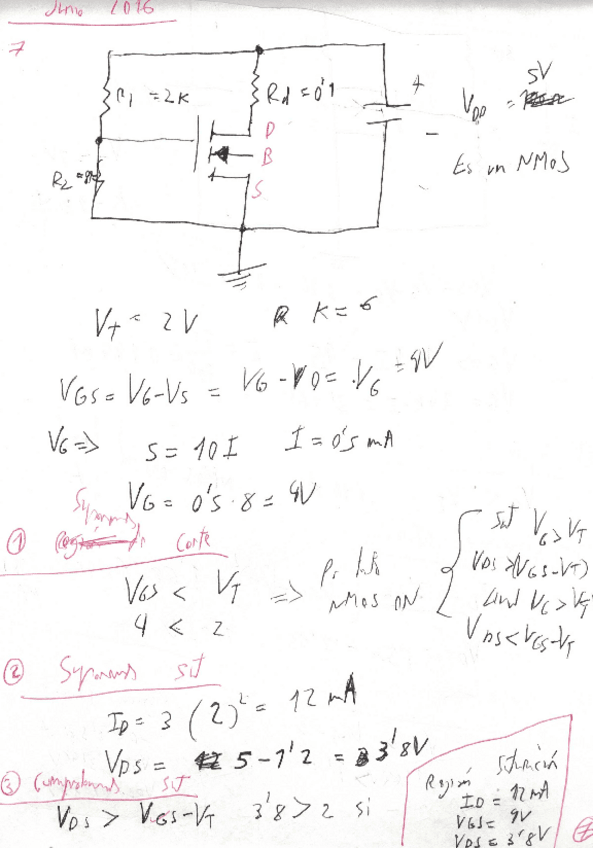 Junio 2016
7
R1 = 2K
Rd = 0'1
5V
VDD =
+
-
D
B
S
R2 = 8k
Es un NMOS
VT = 2V K = 6
VGS = VG - VS = VG - 0 = VG = 4V
VG => 5 = 10 I I = 0'5 mA
VG = 0'5 · 8 = 4V
① Suponemos corte
VGS < VT =>
4 < 2
NMOS ON
sat VG > VT
VDS > (VGS - VT)
VG > VT
VDS < VGS - VT
② Suponemos sat
ID = 3 (2)² = 12 mA
VDS = 5 - 1'2 = 3'8V
③ Comprobamos sat
VDS > VGS - VT 3'8 > 2 si
Región Saturación
ID = 12 mA
VGS = 4V
VDS = 3'8V